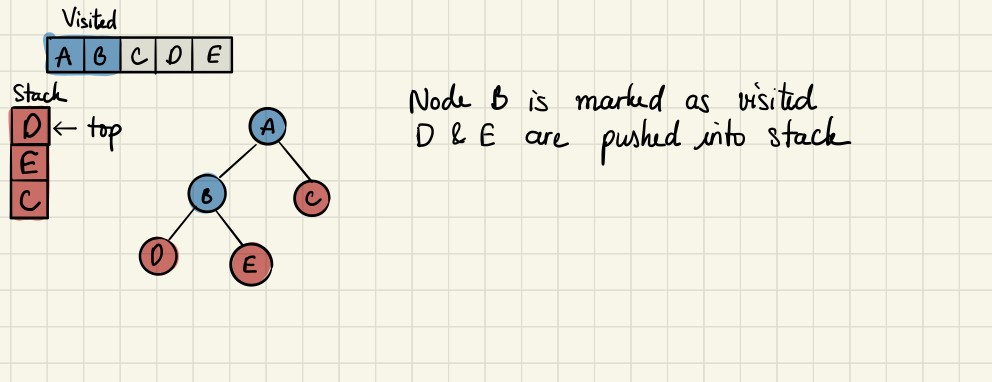 Visited
A B C D E
Stack
D ← top
E
C
A
B
C
D
E
Node B is marked as visited
D & E are pushed into stack